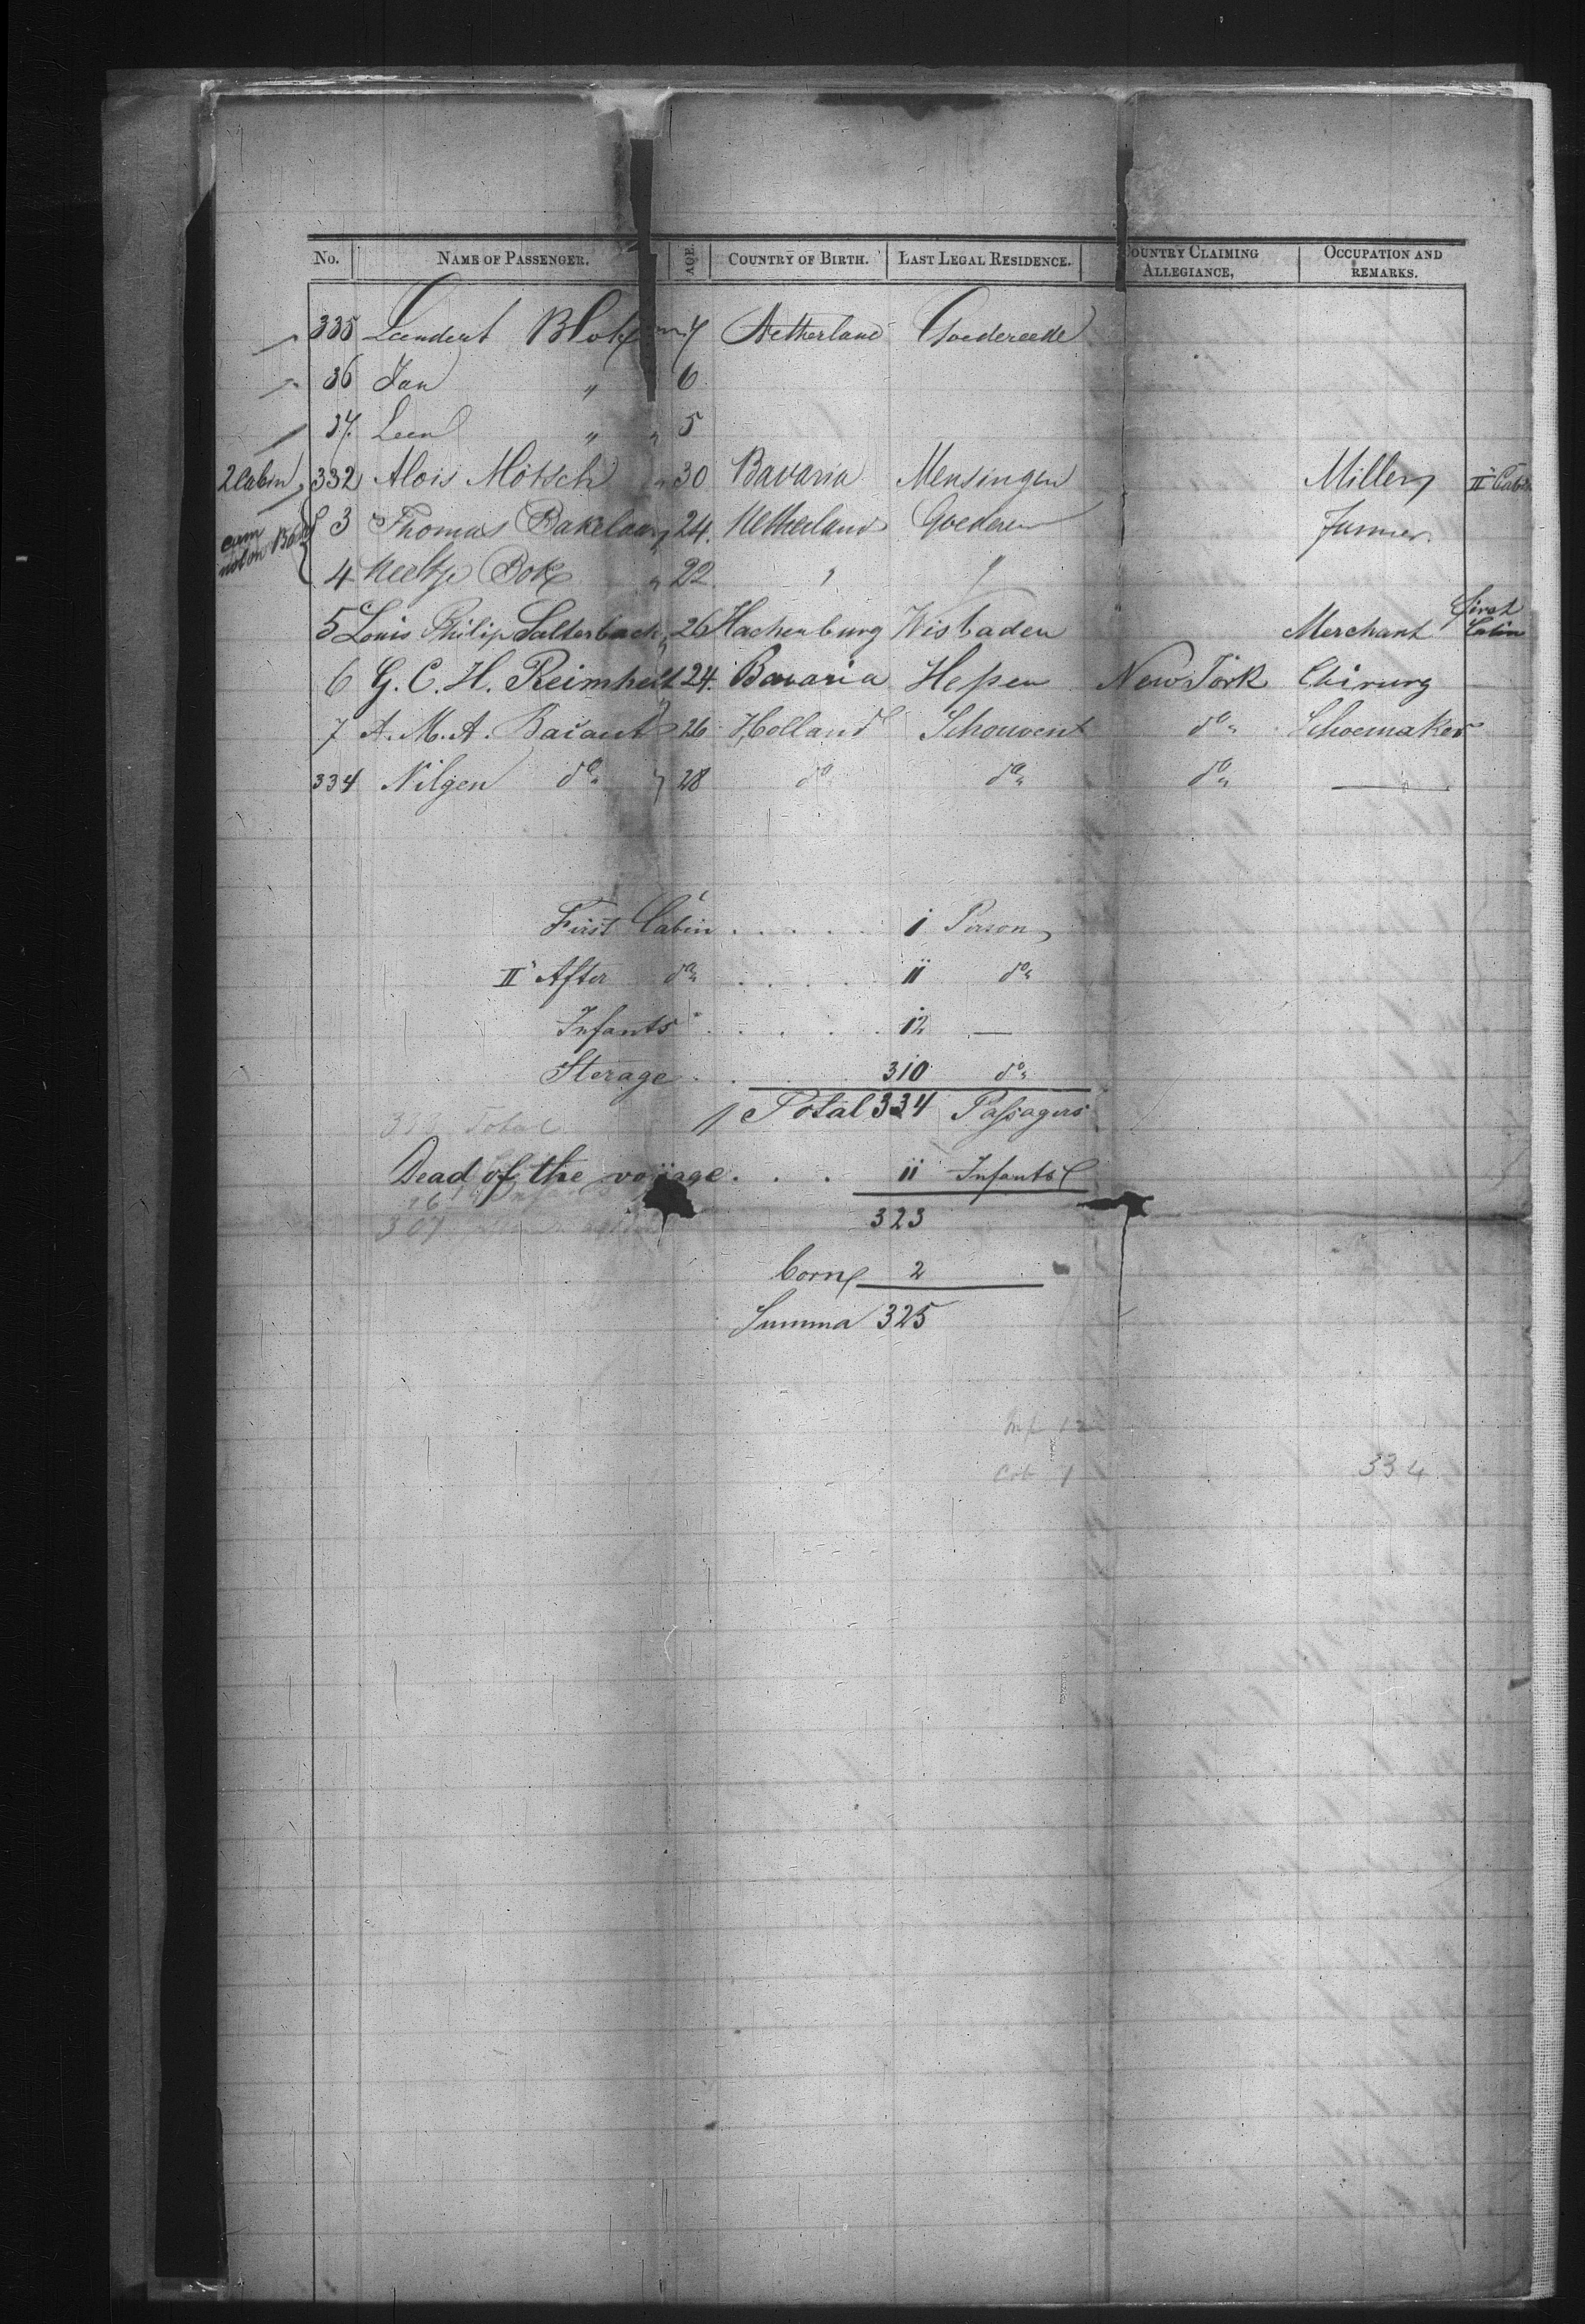 No. NAME OF PASSENGER. AGE. COUNTRY OF BIRTH. LAST LEGAL RESIDENCE. COUNTRY CLAIMING ALLEGIANCE, OCCUPATION AND REMARKS.
335 Leendert Blok m 7 Netherland Goedereede
36 Jan " 6
37 Leen " " 5
2 Cabin 332 Alois Mötsch " 30 Bavaria Mensingen Miller II" Cabin
not on Board 3 Thomas Bakelaar 24. Netherland Goederee Farmer
4 Neeltje Bok " 22
5 Louis Philip Salterbach 26 Hachenburg Wisbaden Merchant first Cabin
6 G. C. H. Reimheit 24. Bavaria Hessen New York Chirurg
7 A. M. A. Baiaut 26 Holland Schouvent do Schoemaker
334 Nilgen do 28 do do do —
First Cabin . . . . . 1 Person
II" After do . . . . . 11 do
Infants . . . . . 12 —
Sterage . . 310 do
Total 334 Passagers
Total
Dead of the voÿage . . . 11 Infants
307
323
born 2
Summa 325
Inf 12
Cab 1 334